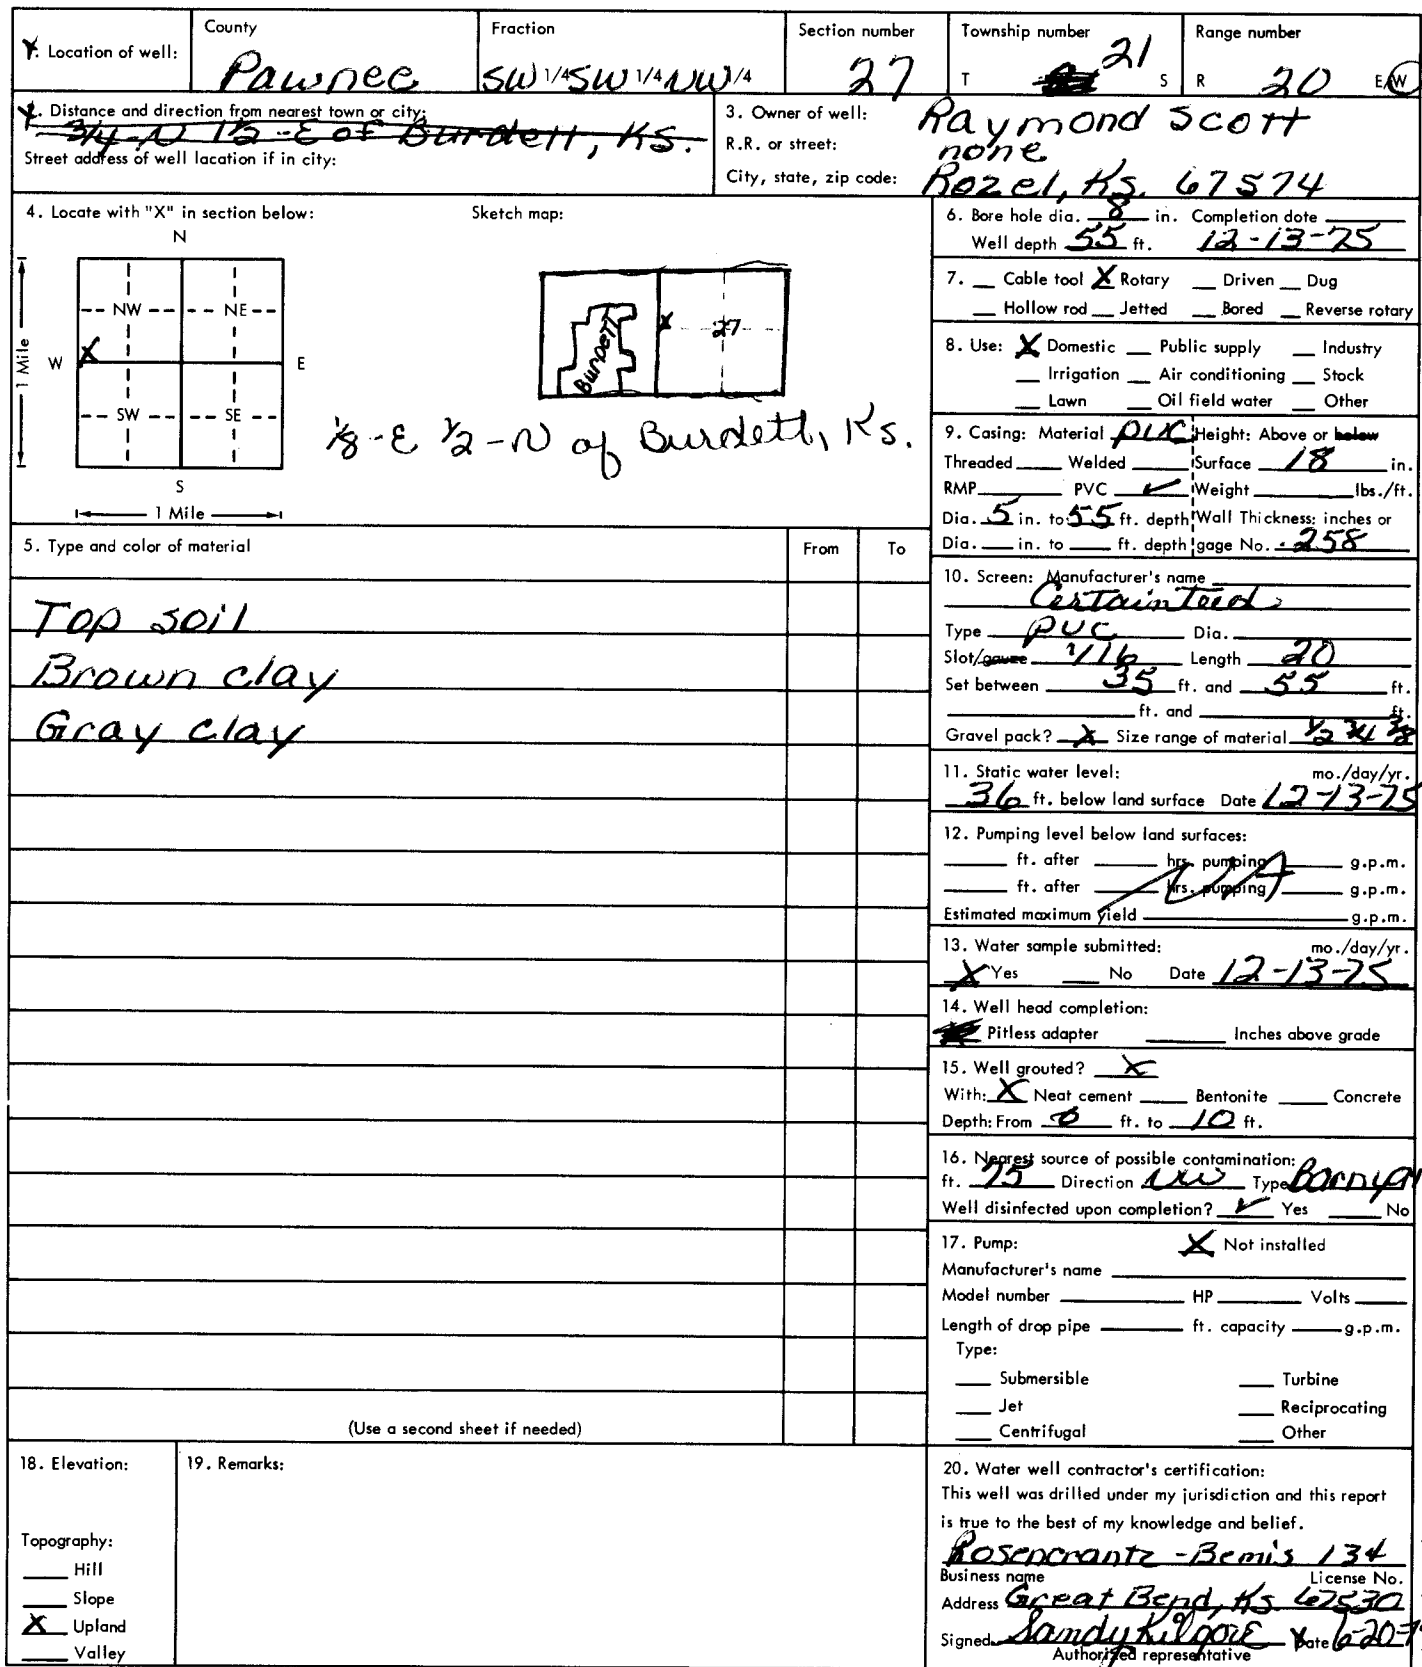 1. Location of well:
County
Pawnee
Fraction
SW 1/4 SW 1/4 NW 1/4
Section number
27
Township number
T 21 S
Range number
R 20 E/W
2. Distance and direction from nearest town or city:
3/4-N 1½-E of Burdett, Ks.
Street address of well location if in city:
3. Owner of well: Raymond Scott
R.R. or street: none
City, state, zip code: Rozel, Ks. 67574
4. Locate with "X" in section below:
N
NW NE
W X E
SW SE
S
1 Mile
1 Mile
Sketch map:
Burdett
X 27
1/8-E 1/2-N of Burdett, Ks.
5. Type and color of material From To
Top soil
Brown clay
Gray clay
(Use a second sheet if needed)
6. Bore hole dia. 8 in. Completion date
Well depth 55 ft. 12-13-75
7. __ Cable tool X Rotary __ Driven __ Dug
__ Hollow rod __ Jetted __ Bored __ Reverse rotary
8. Use: X Domestic __ Public supply __ Industry
__ Irrigation __ Air conditioning __ Stock
__ Lawn __ Oil field water __ Other
9. Casing: Material PVC Height: Above or below
Threaded __ Welded __ Surface 18 in.
RMP __ PVC ✓ Weight __ lbs./ft.
Dia. 5 in. to 55 ft. depth Wall Thickness: inches or
Dia. __ in. to __ ft. depth gage No. .258
10. Screen: Manufacturer's name
Certainteed
Type PVC Dia. __
Slot/gauze 1/16 Length 20
Set between 35 ft. and 55 ft.
__ ft. and __ ft.
Gravel pack? X Size range of material 1/2 3/4 3/8
11. Static water level: mo./day/yr.
36 ft. below land surface Date 12-13-75
12. Pumping level below land surfaces:
__ ft. after __ hrs. pumping __ g.p.m.
__ ft. after __ hrs. pumping __ g.p.m.
NA
Estimated maximum yield __ g.p.m.
13. Water sample submitted: mo./day/yr.
X Yes __ No Date 12-13-75
14. Well head completion:
Pitless adapter __ Inches above grade
15. Well grouted? X
With: X Neat cement __ Bentonite __ Concrete
Depth: From 0 ft. to 10 ft.
16. Nearest source of possible contamination:
ft. 75 Direction NW Type Barnya
Well disinfected upon completion? ✓ Yes __ No
17. Pump: X Not installed
Manufacturer's name __
Model number __ HP __ Volts __
Length of drop pipe __ ft. capacity __ g.p.m.
Type:
__ Submersible __ Turbine
__ Jet __ Reciprocating
__ Centrifugal __ Other
18. Elevation:
Topography:
__ Hill
__ Slope
X Upland
__ Valley
19. Remarks:
20. Water well contractor's certification:
This well was drilled under my jurisdiction and this report
is true to the best of my knowledge and belief.
Rosencrantz-Bemis 134
Business name License No.
Address Great Bend, Ks 67530
Signed Sandy Kilgore Date 6-20-7
Authorized representative